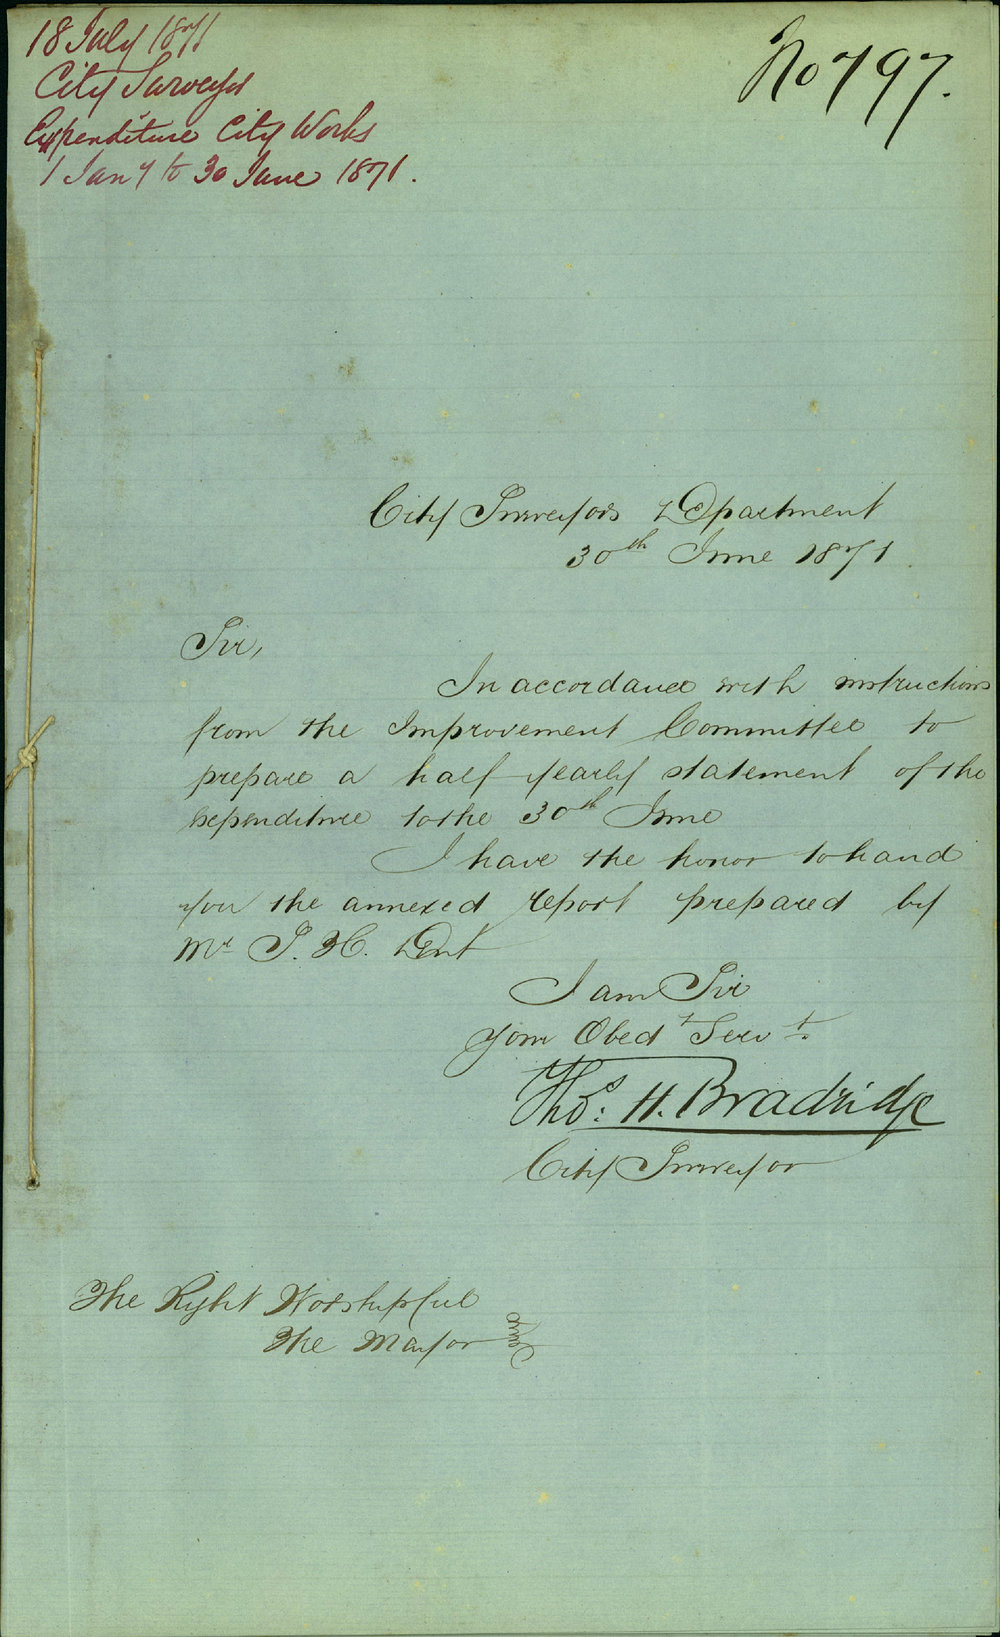 18 July 1871
City Surveyor
Expenditure City Works
1 Jany to 30 June 1871.
No 797.
City Surveyors Department
30th June 1871
Sir,
In accordance with instructions
from the Improvement Committee to
prepare a half yearly statement of the
expenditure to the 30th June
I have the honor to hand
you the annexed report prepared by
Mr S. H. Dent
I am Sir
your Obedt Servt.
Thos: H. Bradridge
City Surveyor
The Right Worshipful
The Mayor